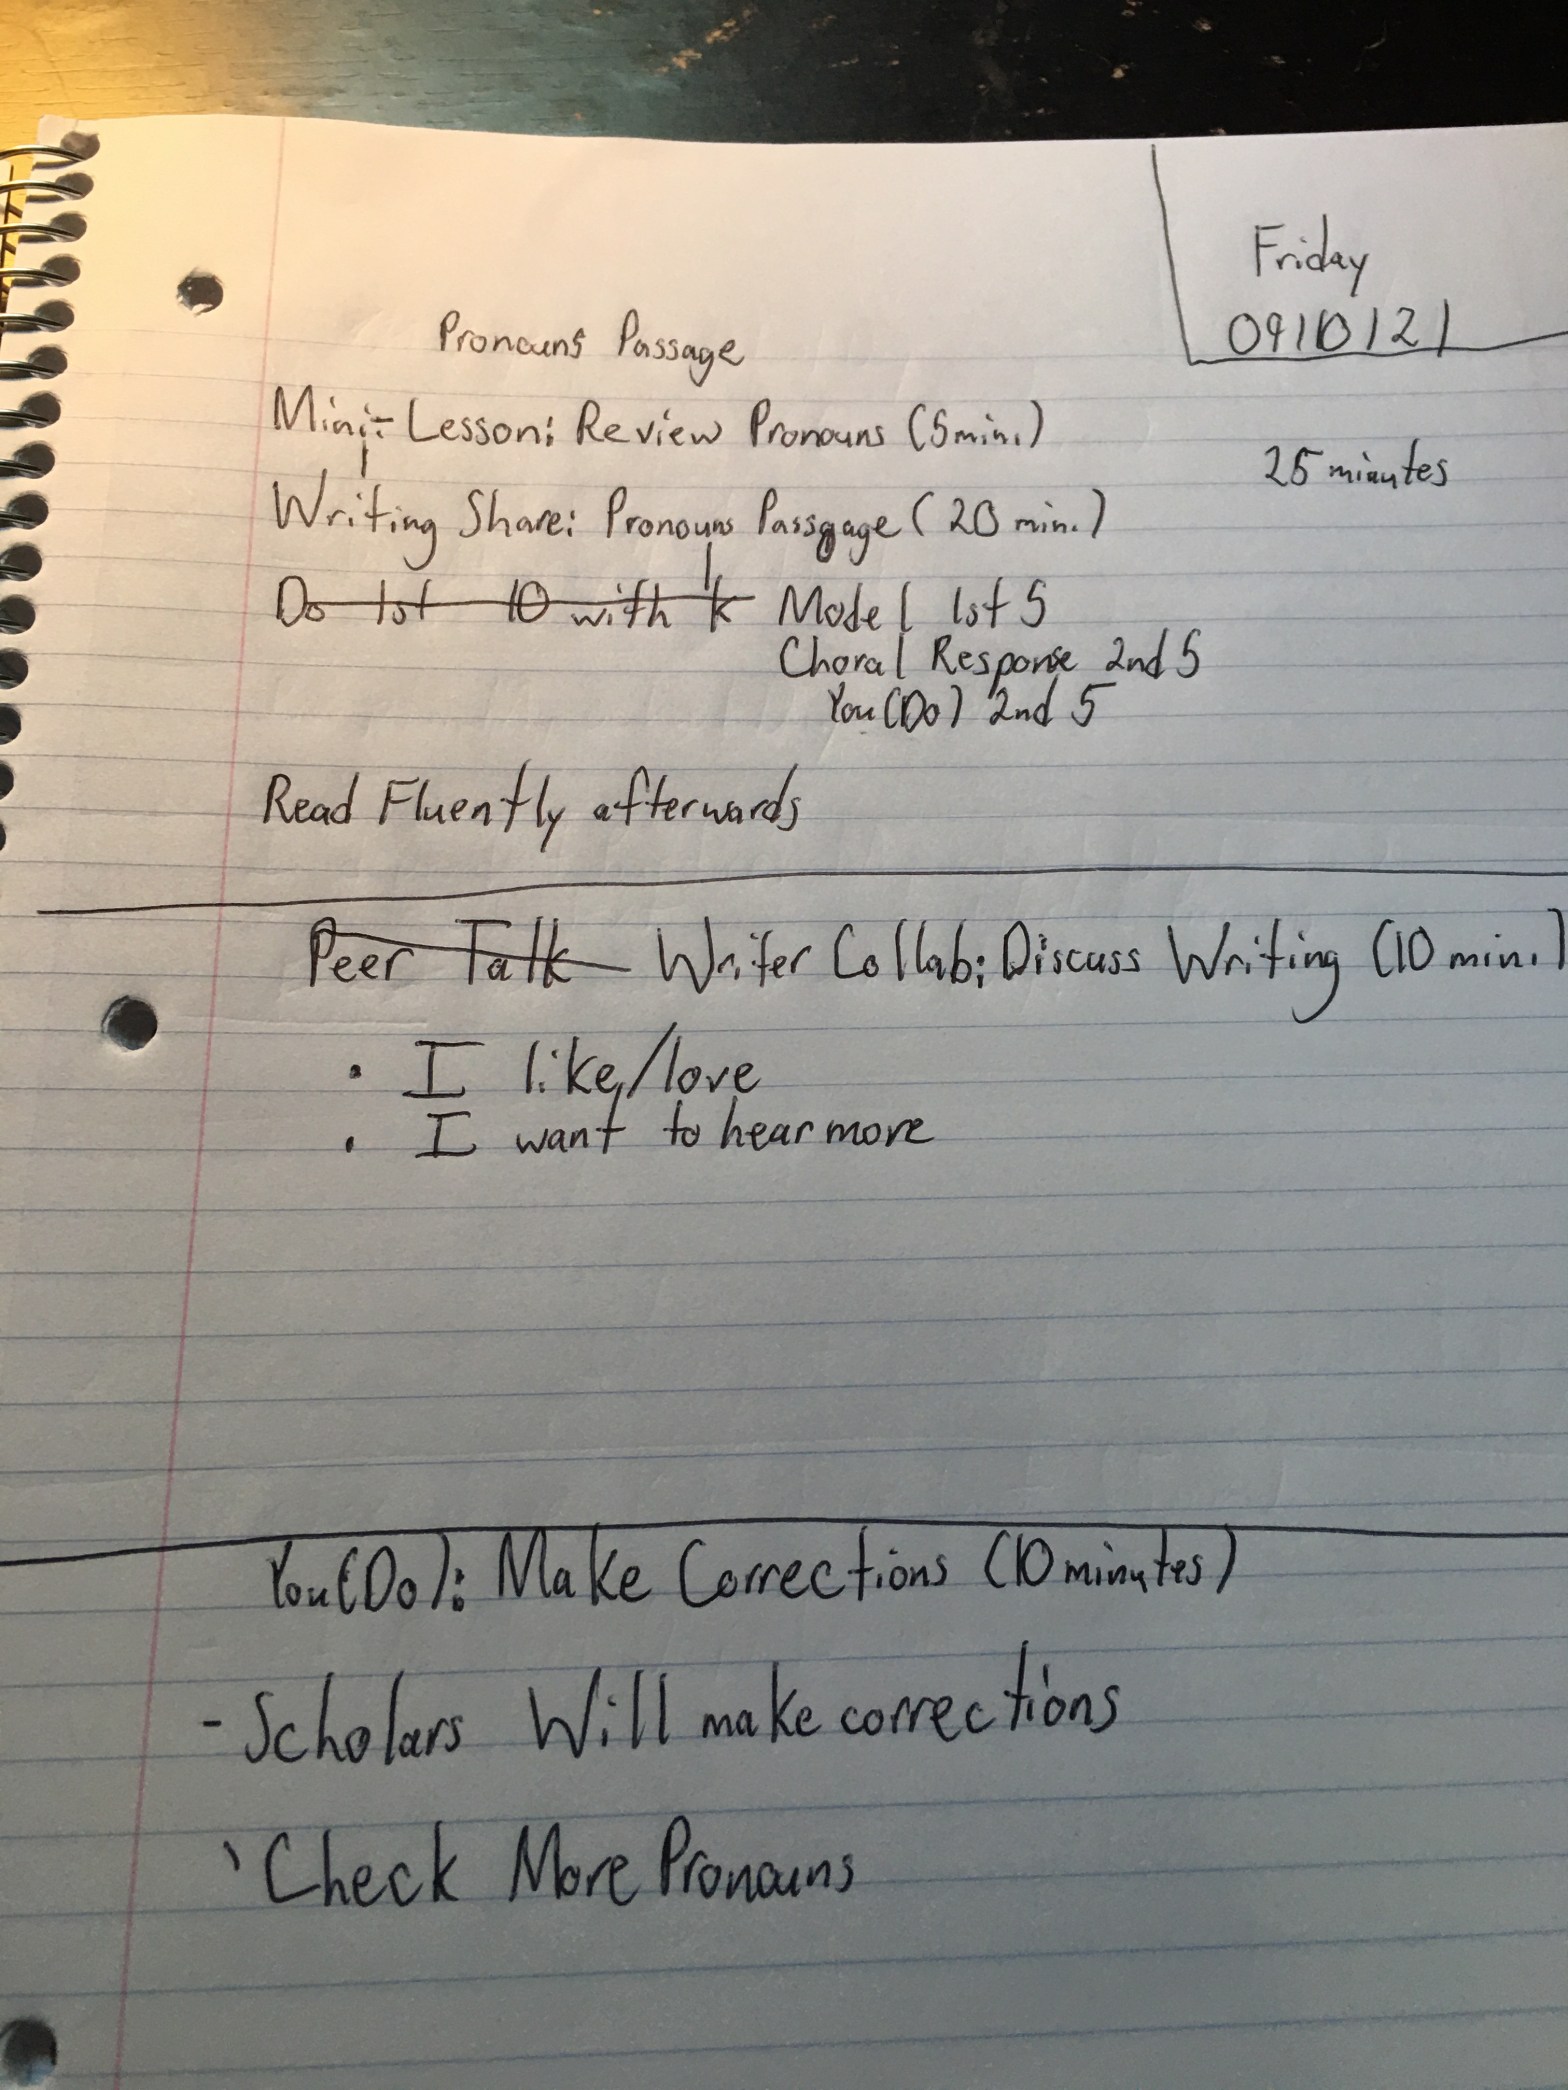 Friday
09/10/21
Pronouns Passage
Mini-Lesson: Review Pronouns (5min.)
25 minutes
Writing Share: Pronouns Passgage (20 min.)
Do 1st 10 with k Model 1st 5
Choral Response 2nd 5
You (Do) 2nd 5
Read Fluently afterwards
Peer Talk Writer Collab: Discuss Writing (10 min.)
• I like/love
• I want to hear more
You(Do): Make Corrections (10 minutes)
- Scholars Will make corrections
` Check More Pronouns